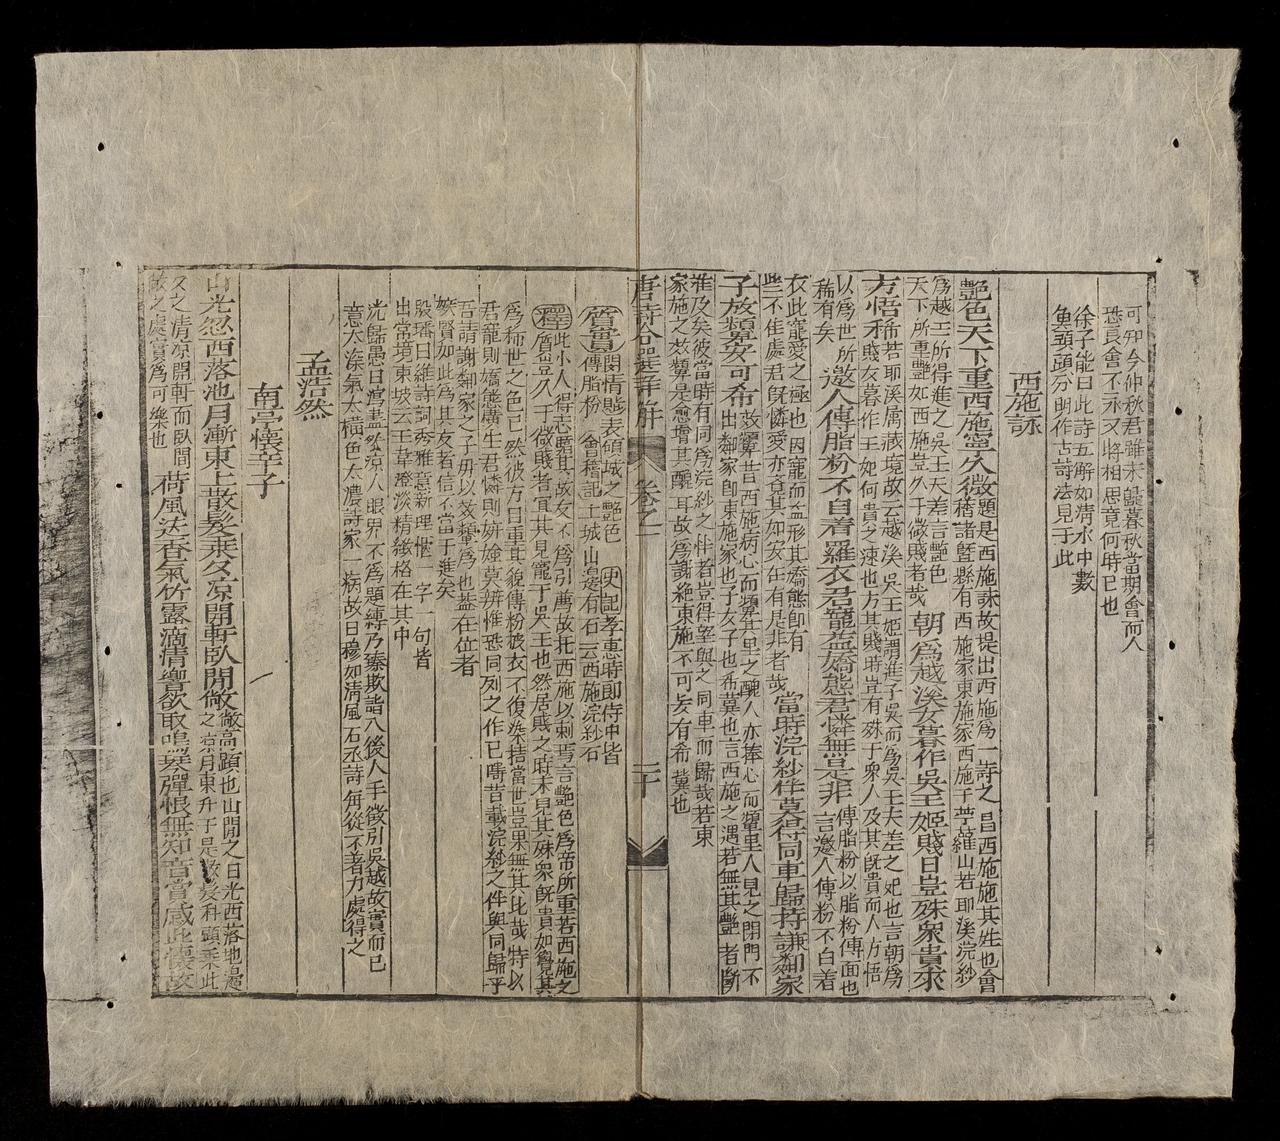 可知今仲秋君雖未歸暮秋當期會而人
恐良會不永又將相思竟何時已也
徐子能曰此詩五解如清水中數
魚頭頭分明作古詩法見于此
西施詠
艷色天下重西施寧久微題是西施詠故提出西施為一詩之昌西施施其姓也會
稽諸暨縣有西施家東施家西施于苧蘿山若耶溪浣紗
為越王所得進之吳王夫差言艷色
天下所重艷如西施豈久于微賤者哉 朝為越溪女暮作吳王姬賤日豈殊衆貴来
方悟稀若耶溪属越境故云越溪吳王姬謂進于吳而為吳王夫差之妃也言朝為
賤女暮作王妃何貴之速也方其賤時豈有殊于衆人及其既貴而人方悟
以為世所
稀有矣 邀人傅脂粉不自着羅衣君寵益嬌態君憐無是非 傅脂粉以脂粉傅面也
言邀人傅粉不自着
衣此寵愛之極也因寵而益形其嬌態即有
些不佳處君既憐愛亦忘其如安在有是非者哉 當時浣紗伴莫得同車歸持謝鄰家
子效顰安可希效顰昔西施病心而顰其里之醜人亦捧心而顰里人見之閉門不
出鄰家即東施家也子女子也希冀也言西施之遇若無其艷者斷
難及矣彼當時有同為浣紗之伴者豈得望與之同車而歸哉若東
家施之效顰是愈增其醜耳故為謝絕東施不可妄有希冀也
唐詩合選詳解 卷之一 二十
質實 閨情賦表傾城之艷色 史記孝惠時郎侍中皆
傅脂粉 會稽記土城山邊有石云西施浣紗石
釋 此小人得志驕其故友不為引薦故托西施以刺焉言艷色為帝所重若西施之
質豈久于微賤者宜其見寵于吳王也然居賤之時未見其殊衆既貴如覺其
為稀世之色已然彼方日重其貌傅粉披衣不復當世豈果無其比哉特以
君寵則嬌態廣生君憐則妍媸莫辨惟恐同列之作已時昔載浣紗之件與同歸乎
吾請謝鄰家之子毋以效顰為也葢在位者
嫉賢如此為其友者信不當于進矣
殷璠曰維詩詞秀雅意新理愜一字一句皆
出常境東坡云王韋澄淡精緻格在其中
沈歸愚曰寫盡炎涼人眼界不為題縛乃臻斯詣入後人手徵引吳越故實而已
意太深氣太橫色太濃詩家一病故曰穆如清風石丞詩每從不著力處得之
孟浩然
南亭懷辛子
山光忽西落池月漸東上散髮乘夕凉開軒臥閒敞敞高顕也山間之日光西落池邊
之京月東升于是散髮科頭乘此
夕之清凉開軒而臥閒
敞之處實為可樂也 荷風送香氣竹露滴清響欲取鳴琴彈恨無知音賞感此懷故